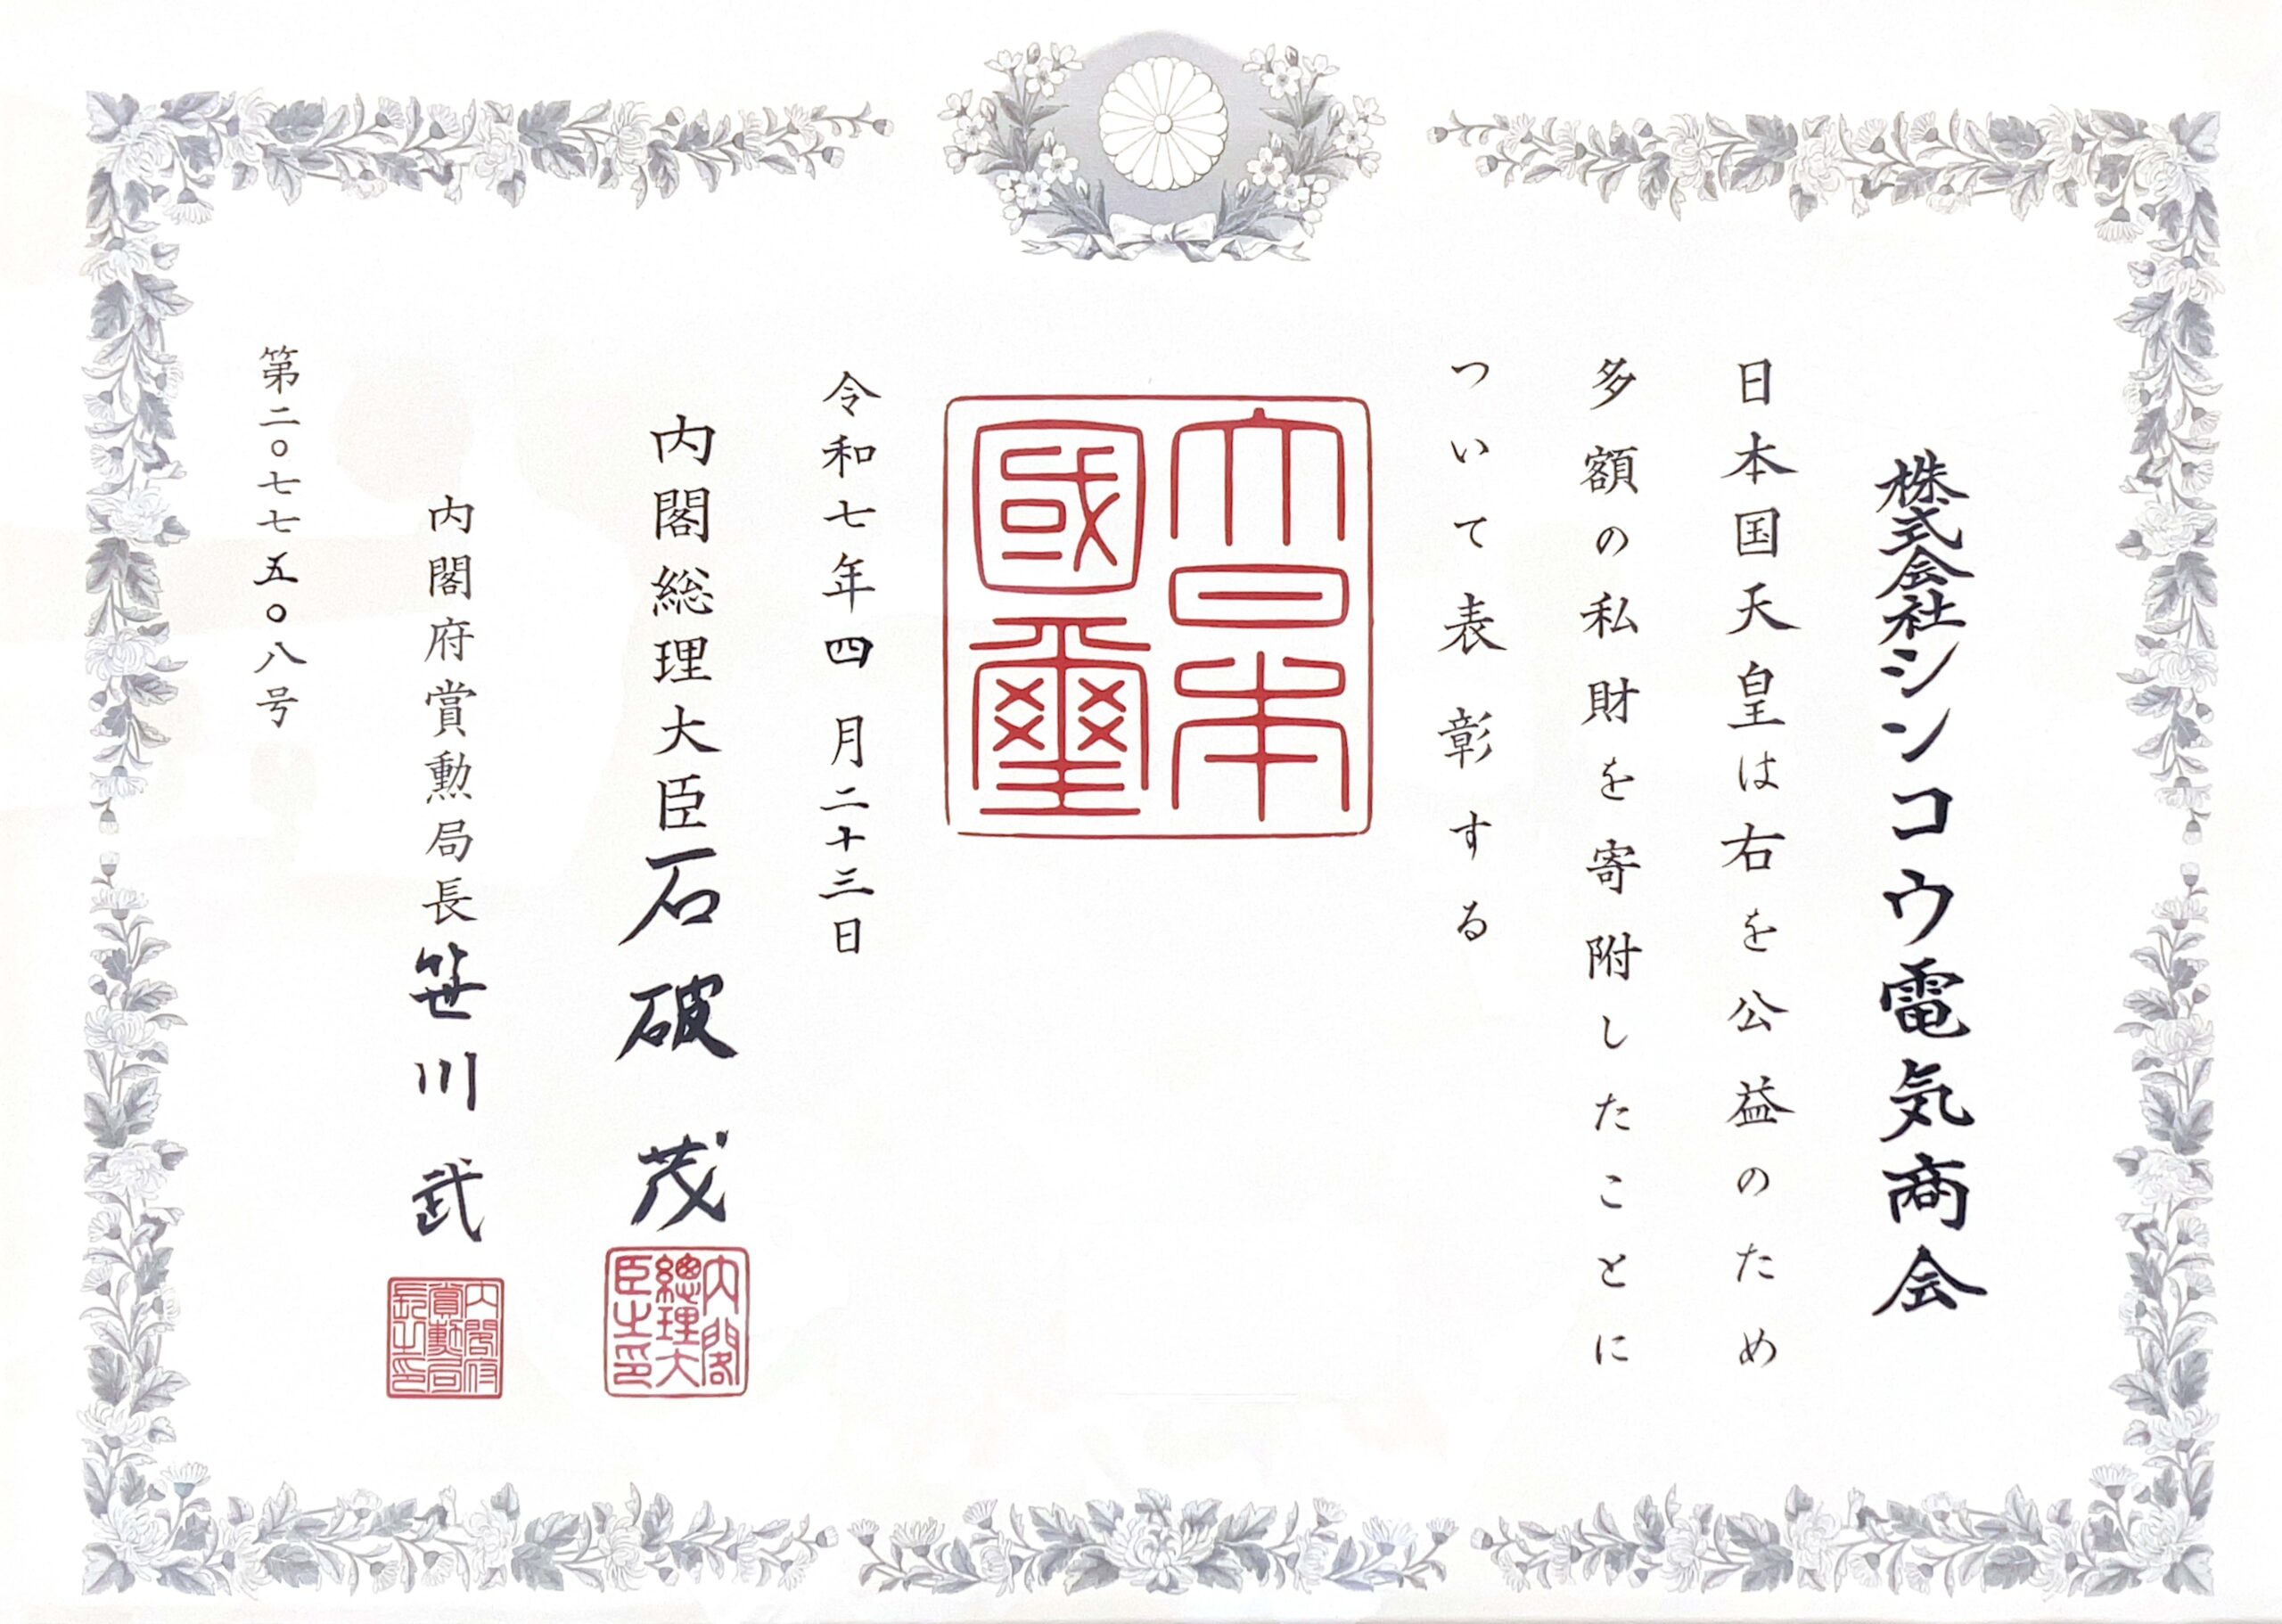 株式会社シンコウ電気商会
日本国天皇は右を公益のため
多額の私財を寄附したことに
ついて表彰する
大日本
國璽
令和七年四月二十三日
内閣総理大臣石破茂
内閣
總理大
臣之印
内閣府賞勲局長笹川武
内閣府
賞勳局
長之印
第二〇七七五〇八号